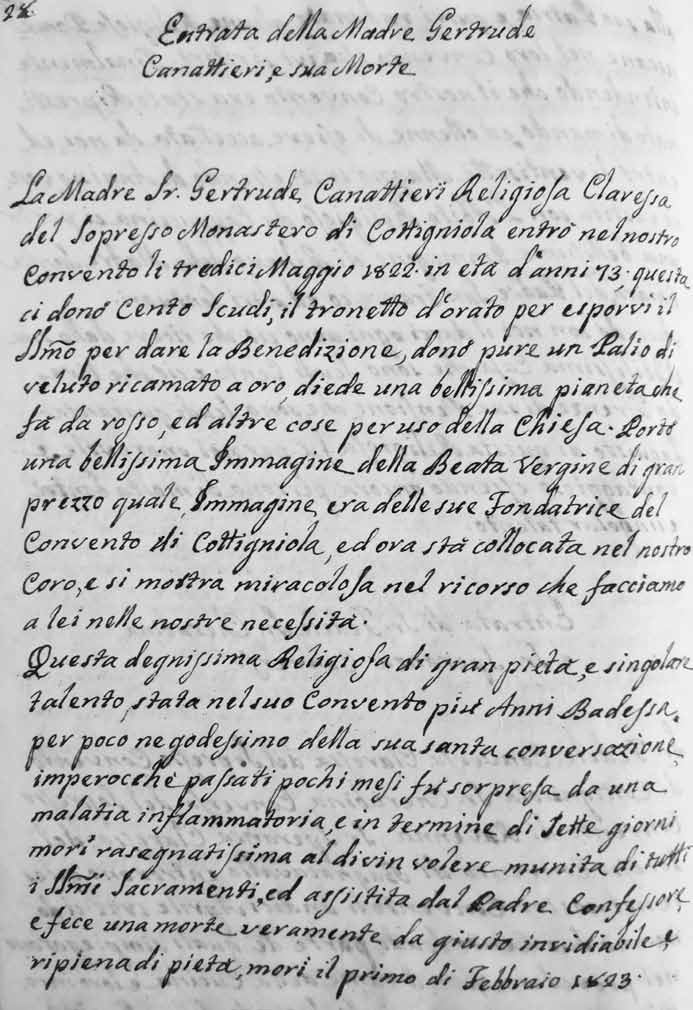 28
Entrata della Madre Gertrude
Canattieri, e sua Morte
La Madre Sr. Gertrude Canattieri Religiosa Claressa
del Sopresso Monastero di Cottigniola entrò nel nostro
Convento li tredici Maggio 1822. in età d'anni 73. questa
ci donò Cento Scudi, il tronetto d'orato per esporvi il
SSm̃o per dare la Benedizione, donò pure un Palio di
veluto ricamato a oro, diede una bellissima pianeta che
fà da rosso, ed altre cose per uso della Chiesa. Portò
una bellissima Immagine della Beata Vergine di gran
prezzo quale Immagine era delle sue Fondatrice del
Convento di Cottigniola, ed ora stà collocata nel nostro
Coro, e si mostra miracolosa nel ricorso che facciamo
a lei nelle nostre necessità.
Questa degnissima Religiosa di gran pietà, e singolare
talento, stata nel suo Convento più Anni Badessa,
per poco ne godessimo della sua santa conversazione,
imperocchè passati pochi mesi fù sorpresa da una
malatia inflammatoria, e in termine di Sette giorni
morì rasegnatissima al divin volere munita di tutti
i SSm̃i Sacramenti, ed assistita dal Padre Confessore,
e fece una morte veramente da giusto invidiabile e
ripiena di pietà, morì il primo di Febbraio 1823.